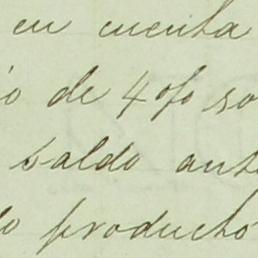 en cuenta
o de 4 % so
saldo ant
lo productó